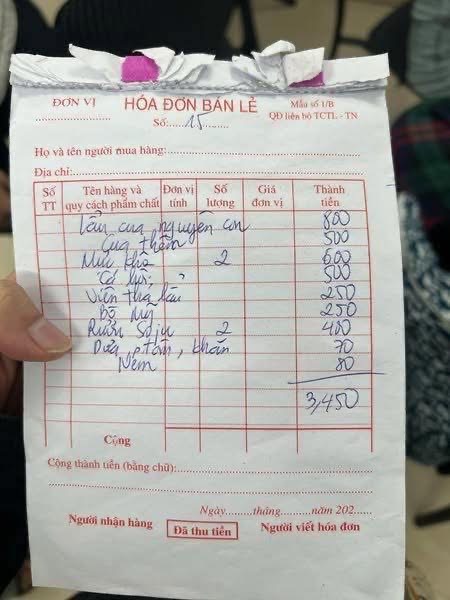 ĐƠN VỊ HÓA ĐƠN BÁN LẺ Mẫu số 1/B
Số:.....15....... QĐ liên bộ TCTL - TN
Họ và tên người mua hàng:
Địa chỉ:
Số TT Tên hàng và quy cách phẩm chất Đơn vị tính Số lượng Giá đơn vị Thành tiền
Lẩu cua nguyên con 800
Cua thêm 500
Mực khô 2 600
500
Viên thả lẩu 250
Bò Mỹ 250
Rượu Soju 2 400
Dưa, khăn 70
Nem 80
3,450
Cộng
Cộng thành tiền (bằng chữ):
Ngày.........tháng.........năm 202....
Người nhận hàng Đã thu tiền Người viết hóa đơn